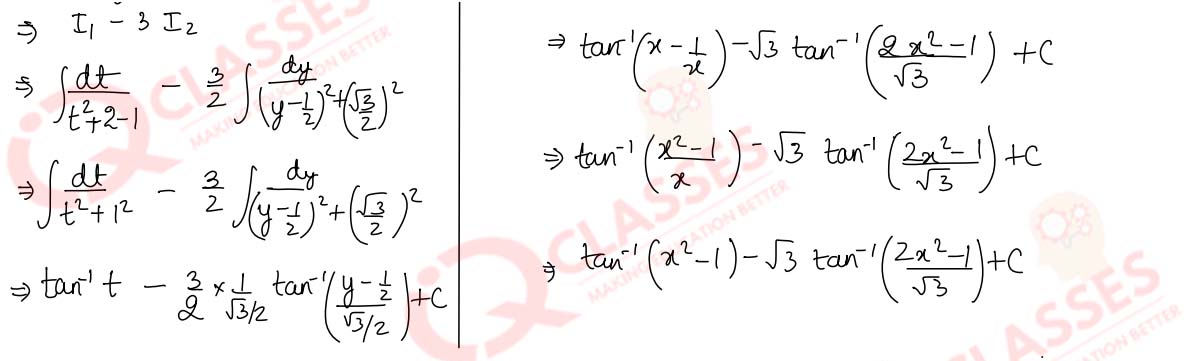 ⇒ I₁ - 3 I₂
⇒ ∫ dt/(t²+2-1) - 3/2 ∫ dy/((y-1/2)²+(√3/2)²)
⇒ ∫ dt/(t²+1²) - 3/2 ∫ dy/((y-1/2)²+(√3/2)²)
⇒ tan⁻¹ t - 3/2 × 1/(√3/2) tan⁻¹((y-1/2)/(√3/2)) +C
⇒ tan⁻¹(x - 1/x) - √3 tan⁻¹((2x²-1)/√3) +C
⇒ tan⁻¹((x²-1)/x) - √3 tan⁻¹((2x²-1)/√3) +C
⇒ tan⁻¹(x²-1) - √3 tan⁻¹((2x²-1)/√3) +C
IQ CLASSES
MAKING EDUCATION BETTER
IQ CLASSES
MAKING EDUCATION BETTER
CLASSES
EDUCATION BETTER